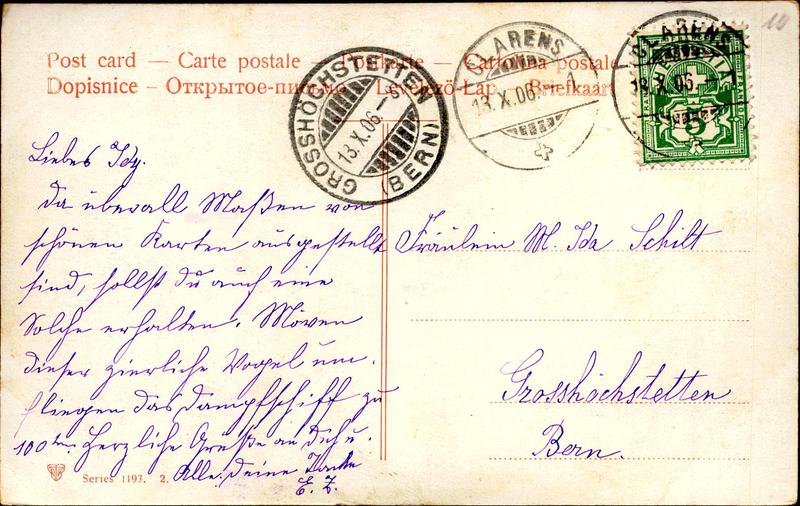 Post card — Carte postale — Postkarte — Cartolina postale
Dopisnice — Открытое письмо — Levelező-Lap — Briefkaart
GROSSHÖCHSTETTEN
13.X.06.–S
(BERN)
CLARENS
13.X.06.–1
CLARENS
13.X.06.–
5
10
Liebes Idy.
Da überall Maßen von
schönen Karten ausgestellt
sind, sollst du auch eine
Solche erhalten. Möven
dieser zierliche Vogel um-
fliegen das Dampfschiff zu
100ten. Herzliche Grüße an Dich u.
Alle. Deine Tante
E. Z.
Fräulein M. Ida Schilt
Grosshöchstetten
Bern.
Series 1193. 2.